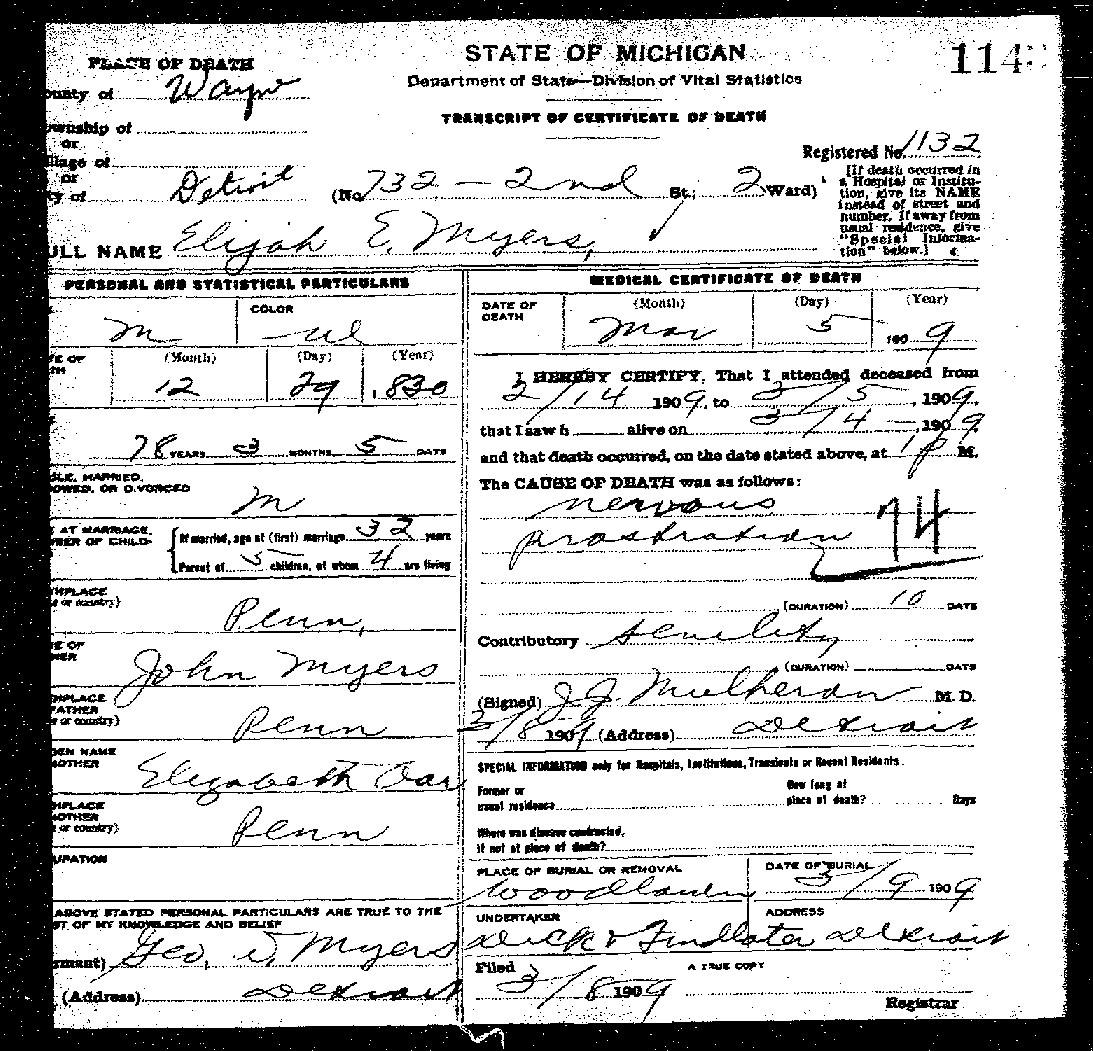 STATE OF MICHIGAN
114
Department of State—Division of Vital Statistics
TRANSCRIPT OF CERTIFICATE OF DEATH
PLACE OF DEATH
ounty of Wayne
ownship of
or
llage of
or
ty of Detroit (No. 732 - 2nd St.; 2 Ward)
Registered No. 1132
[If death occurred in
a Hospital or Institu-
tion, give its NAME
instead of street and
number. If away from
usual residence, give
"Special Informa-
tion" below.]
ULL NAME Elijah E. Myers,
PERSONAL AND STATISTICAL PARTICULARS
COLOR
M
TE OF
TH
(Month) (Day) (Year)
12 29 1830
78 YEARS 3 MONTHS 5 DAYS
GLE, MARRIED,
OWED, OR DIVORCED
M
AT MARRIAGE,
BER OF CHILD-
If married, age at (first) marriage 32 years
Parent of 5 children, of whom 4 are living
THPLACE
e or country)
Penn,
E OF
HER
John Myers
THPLACE
FATHER
e or country)
Penn
DEN NAME
MOTHER
Elizabeth
THPLACE
MOTHER
e or country)
Penn
UPATION
ABOVE STATED PERSONAL PARTICULARS ARE TRUE TO THE
ST OF MY KNOWLEDGE AND BELIEF
rmant) Geo. Myers
(Address) Detroit
MEDICAL CERTIFICATE OF DEATH
DATE OF
DEATH
(Month) (Day) (Year)
Mar 5 1909
I HEREBY CERTIFY, That I attended deceased from
2/14 1909, to 3/5, 1909,
that I saw h alive on 3/4, 1909
and that death occurred, on the date stated above, at 1 P M.
The CAUSE OF DEATH was as follows:
nervous
prostration
74
(DURATION) 10 DAYS
Contributory senility
(DURATION) DAYS
(Signed) J. J. Mulheron M. D.
3/8 1909 (Address) Detroit
SPECIAL INFORMATION only for Hospitals, Institutions, Transients or Recent Residents.
Former or
usual residence
How long at
place of death? Days
Where was disease contracted,
if not at place of death?
PLACE OF BURIAL OR REMOVAL
Woodlawn
DATE OF BURIAL
3/9 1909
UNDERTAKER
ADDRESS
Findlater Detroit
Filed 3/8 1909
A TRUE COPY
Registrar